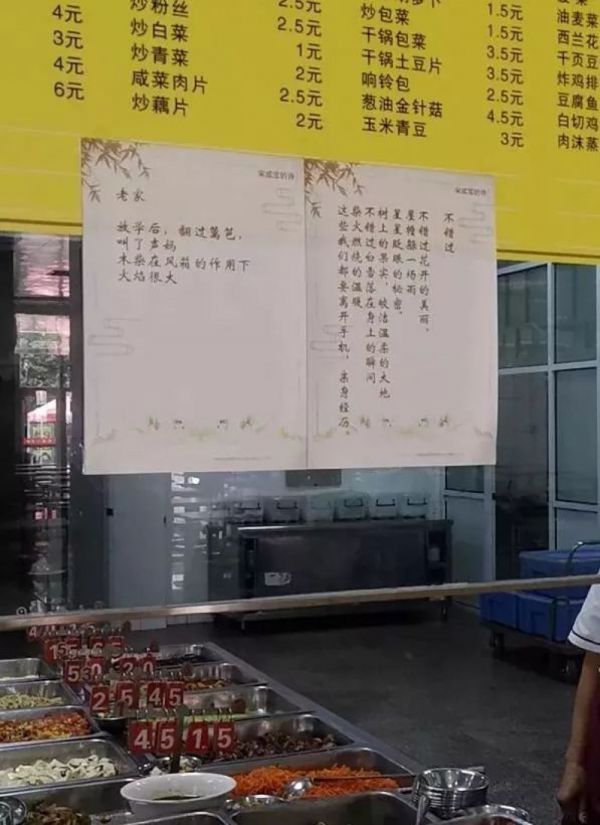 4元 炒粉丝 2.5元
3元 炒白菜 1元 炒包菜 1.5元 油麦菜
4元 炒青菜 2元 干锅包菜 3.5元 西兰花
6元 咸菜肉片 2.5元 干锅土豆片 3.5元 千页豆
炒藕片 2元 响铃包 2.5元 炸鸡排
葱油金针菇 4.5元 豆腐鱼
玉米青豆 3元 白切鸡
肉沫蒸
老家
放学后，翻过篱笆，
叫了声妈
木柴在风箱的作用下
火焰很大
不错过
不错过花开的美丽，
屋檐躲一场雨
星星眨眼的秘密，
树上的果实，皎洁温柔的大地
不错过白雪落在身上的瞬间
柴火燃烧的温暖
这些我们都要离开手机，亲身经历。
2 5 4 5
4 5 1 5